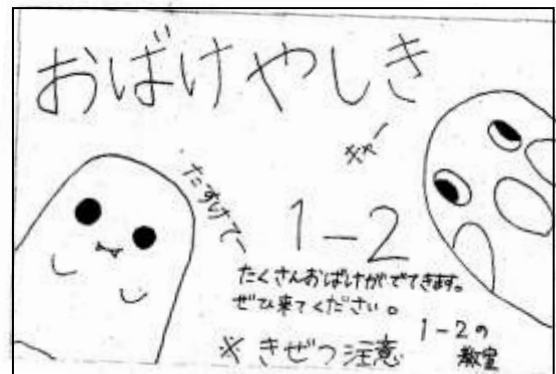 おばけやしき
ギャー
たすけてー
1-2
たくさんおばけがでてきます。
ぜひ来てください。
※きぜつ注意
1-2の
教室